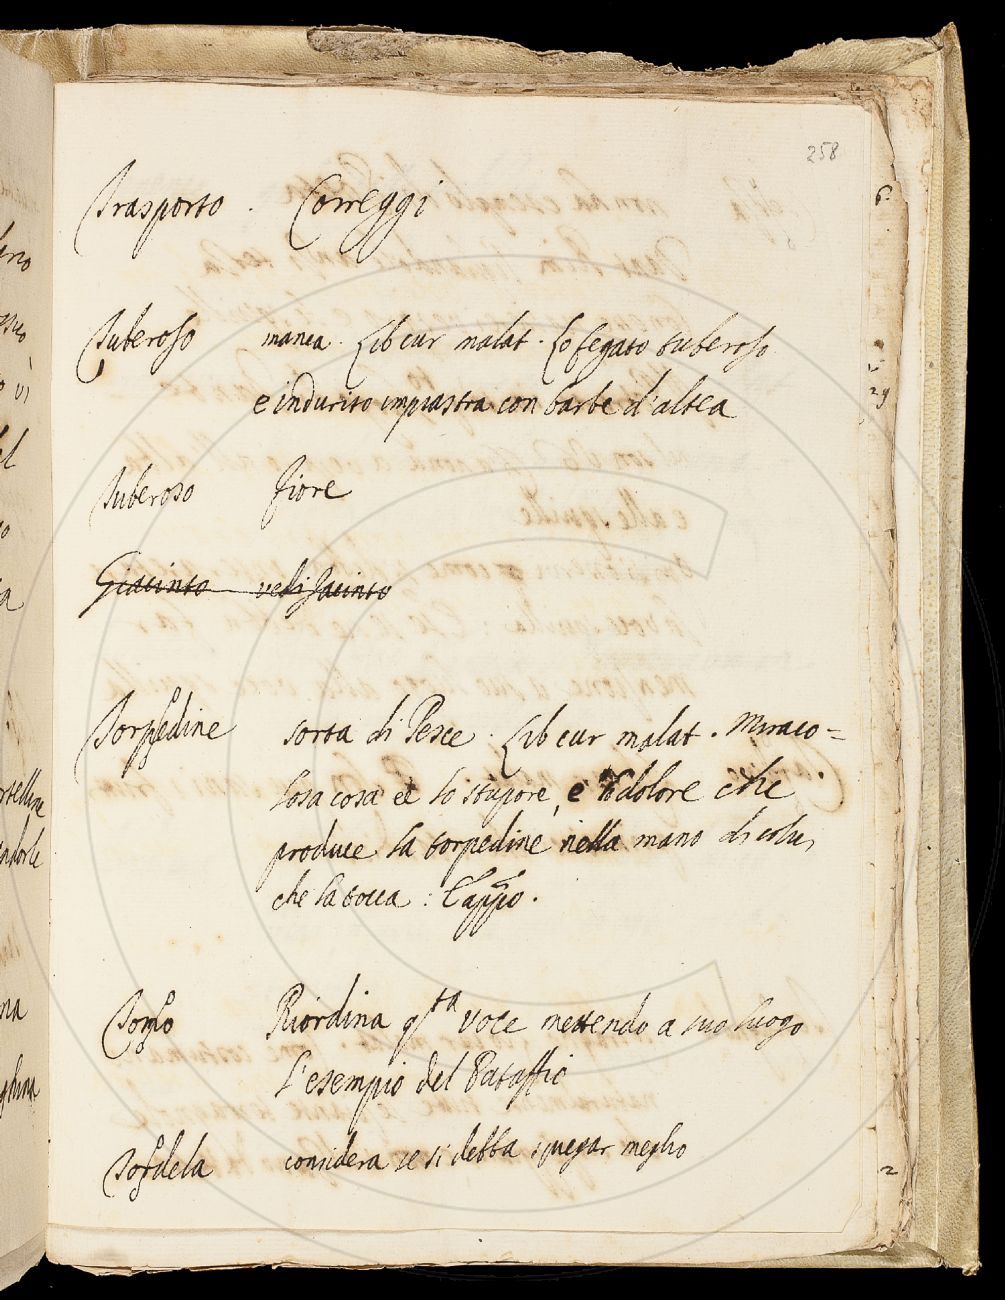 258
Trasporto. Correggi
Tuberoso manca. Lib cur malat. Lo fegato tuberoso
e indurito impiastra con barbe d'altea
Tuberoso fiore
Giacinto vedi Jacinto
Torpedine sorta di Pesce. Lib cur malat. Miraco=
losa cosa ee lo stupore, e lo dolore che
produce la torpedine nella mano di colui
che la tocca:
Riordina qta voce mettendo a suo luogo
l'esempio del Pataffio
considera se si debba spiegar meglio